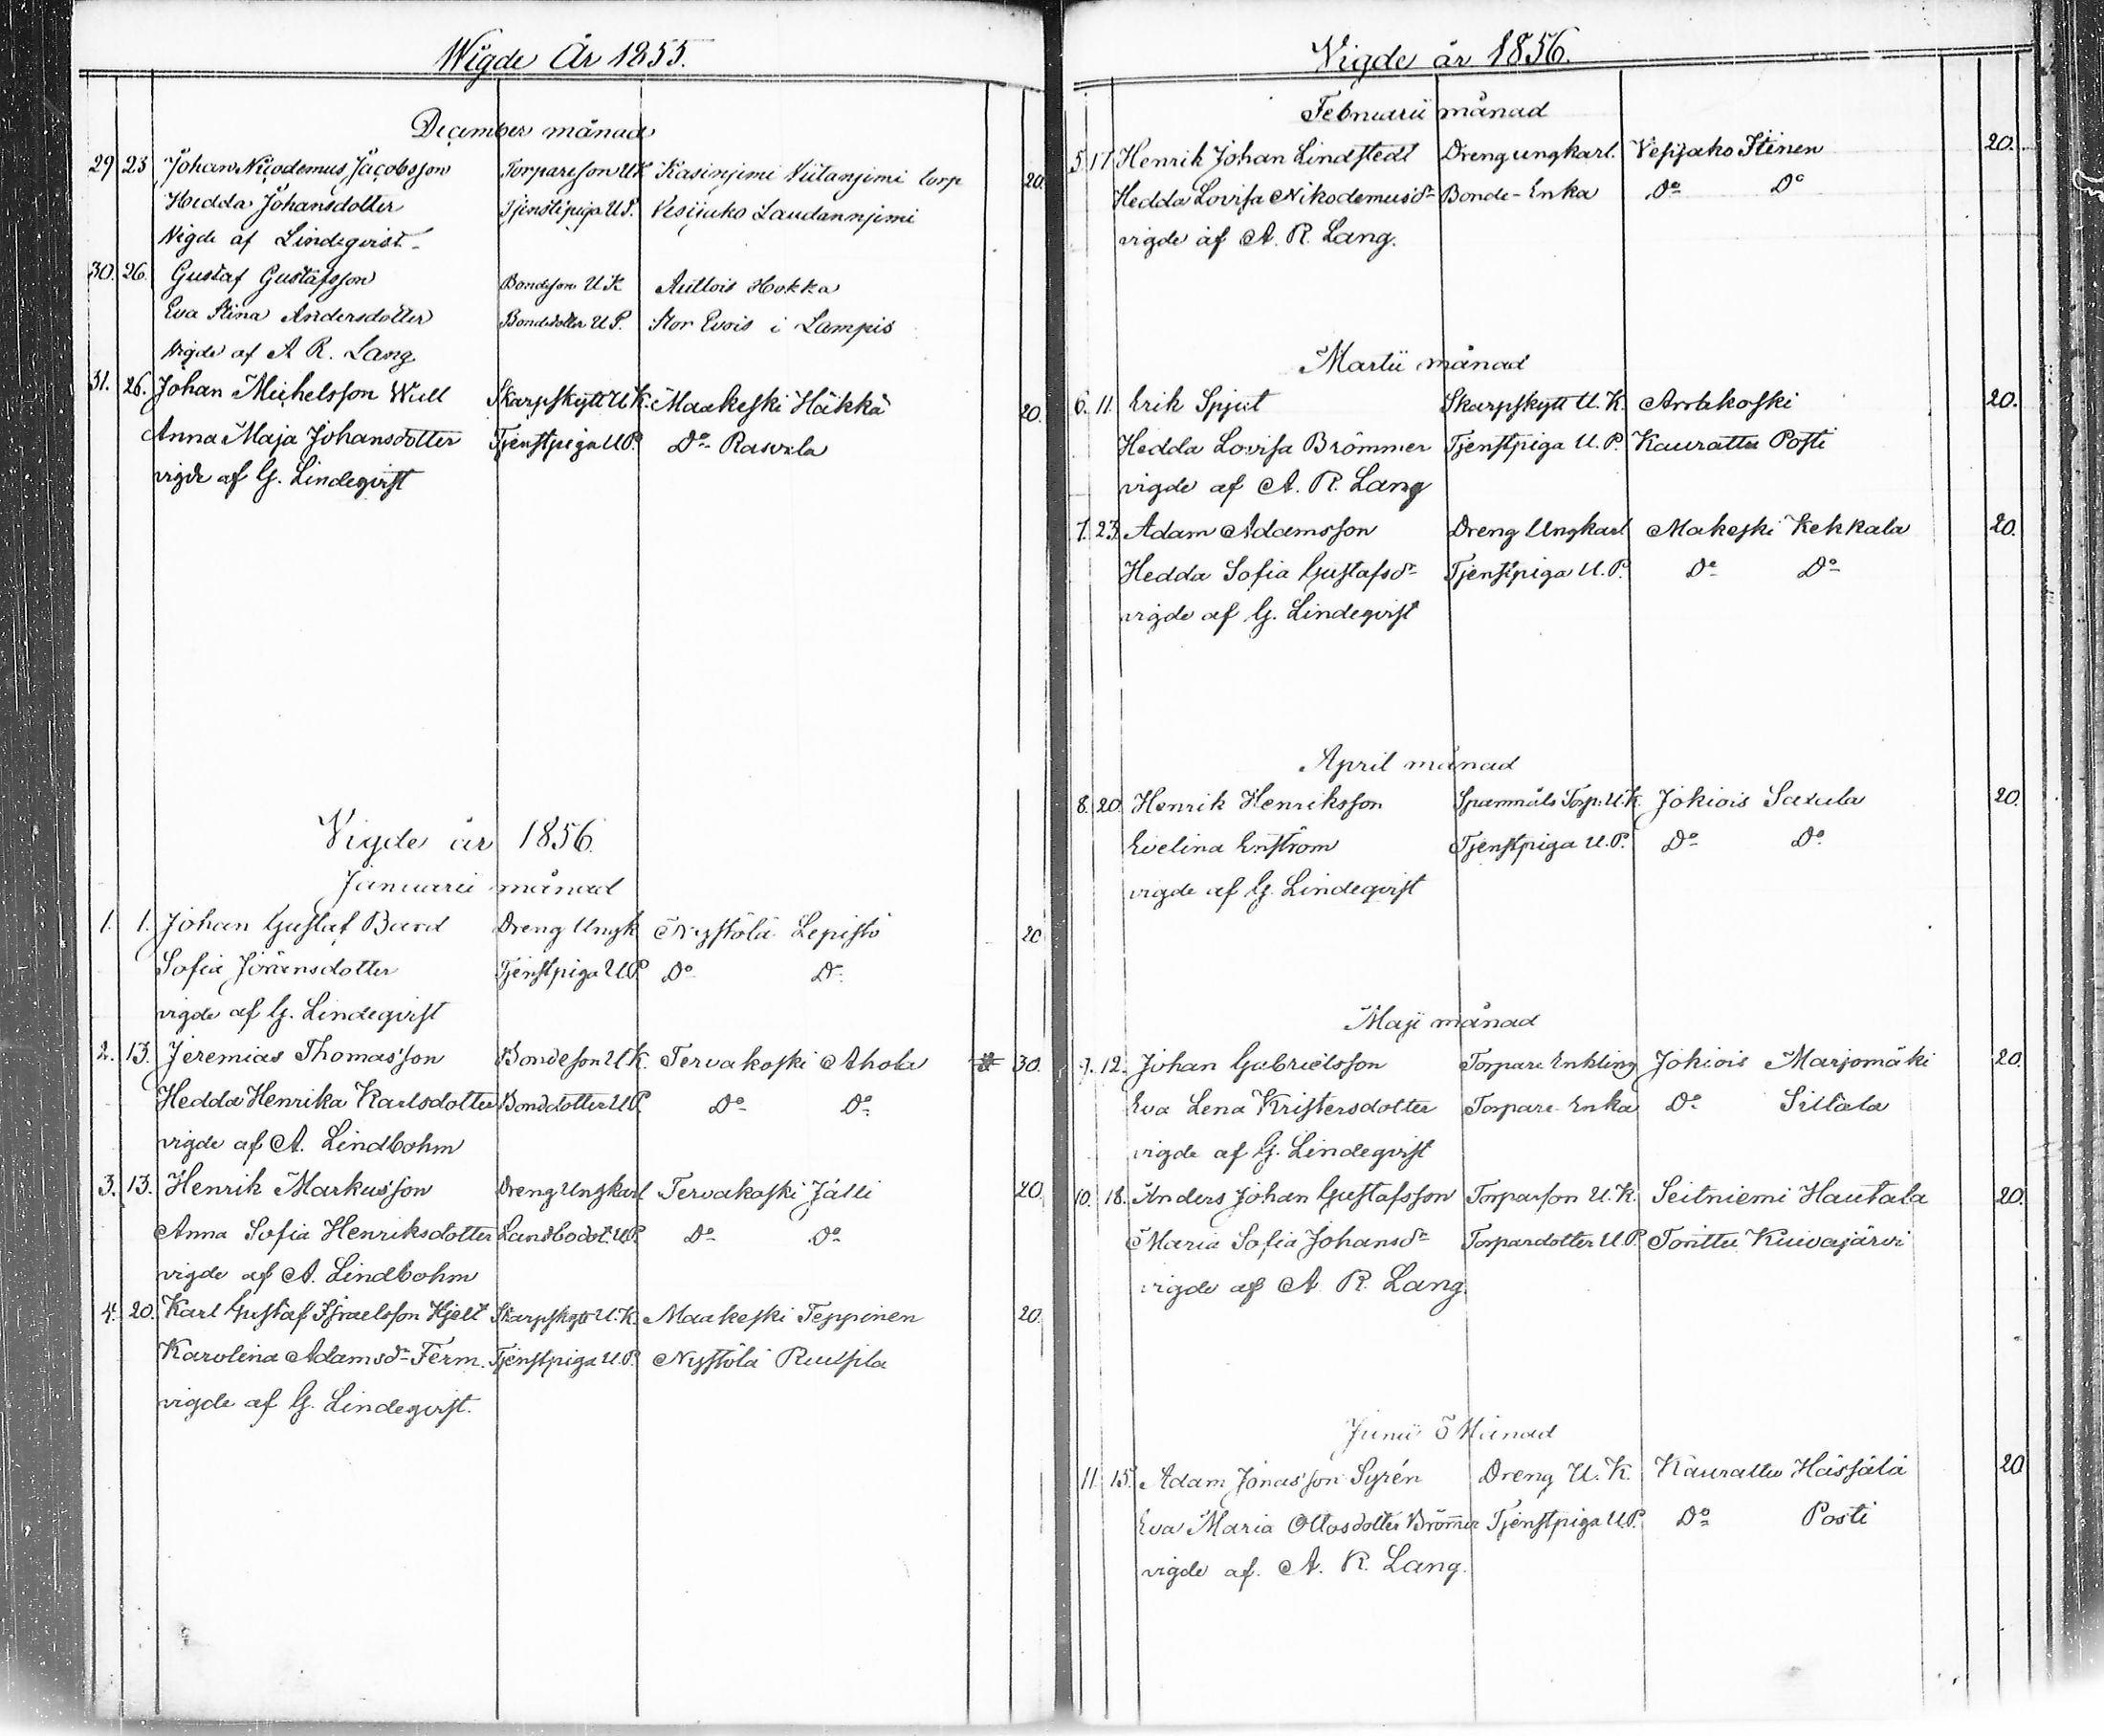 Wigde År 1855.
December månad
29 23 Johan Nicodemus Jacobsson Torpareson UK Kasinjemi Niitanjemi torp 20.
Hedda Johansdotter Tjenstepiga U.P. Vesijako Laudannjemi
Vigde af Lindeqvist.
30. 26. Gustaf Gustafsson Bondeson U K Autlois Hokka
Eva Stina Andersdotter Bondedotter U P. Stor Evois i Lampis
Vigde af A R. Lang
31. 26. Johan Michelsson Wall Skarpskytt U K. Maakeski Häkkä 20.
Anna Maja Johansdotter Tjenstpiga U.P. Do Rasvala
vigde af G. Lindeqvist
Vigde år 1856.
Januarii månad
1. 1. Johan Gustaf Bard Dreng Ungk Nystölä Lepistö 20
Sofia Jöransdotter Tjenstpiga U.P. Do Do
vigde af G. Lindeqvist
2. 13. Jeremias Thomasson Bondeson U K. Tervakoski Ahola # 30.
Hedda Henrika Karlsdotter Bonddotter U.P. Do Do
vigde af A. Lindbohm
3. 13. Henrik Markusson Dreng Ungkarl Tervakoski Jälli 20.
Anna Sofia Henriksdotter Landbodot. U.P. Do Do
vigde af A. Lindbohm
4. 20. Karl Gustaf Israelsson Hjelt Skarpskytt U.K. Maakeski Teppinen 20.
Karolina Adamsdr Ferm. Tjenstpiga U.P. Nystölä Ruuspila
vigde af G. Lindeqvist.
Vigde år 1856.
Februarii månad
5. 17 Henrik Johan Lindstedt Dreng ungkarl. Vesijako Iinen 20.
Hedda Lovisa Nikodemusdr Bonde-Enka Do Do
vigde af A. R. Lang.
Martii månad
6. 11. Erik Spjut Skarpskytt U. K. Arrakoski 20.
Hedda Lovisa Brömmer Tjenstpiga U. P. Kaurattu Posti
vigde af A. R. Lang
7. 23. Adam Adamsson Dreng Ungkarl Makeski Kekkala 20.
Hedda Sofia Gustafsdr Tjenstpiga U. P. Do Do
vigde af G. Lindeqvist
April månad
8. 20. Henrik Henriksson Spanmåls Torp. U.K. Jokiois Saxala 20.
Evelina Enström Tjenstpiga U.P. Do Do
vigde af G. Lindeqvist
Maji månad
9. 12. Johan Gabrielsson Torpare Enkling Jokiois Marjomäki 20.
Eva Lena Kristersdotter Torpare Enka Do Sillala
vigde af G. Lindeqvist
10. 18. Anders Johan Gustafsson Torparson U. K. Seitniemi Hautala 20.
Maria Sofia Johansdr Torpardotter U.P. Torittu Kuivajärvi
vigde af A R. Lang.
Junii Månad
11. 15. Adam Jonasson Syrén Dreng U. K. Kaurattu Hassala 20
Eva Maria Ottosdotter Brömer Tjenstpiga U.P. Do Posti
vigde af. A. R. Lang.